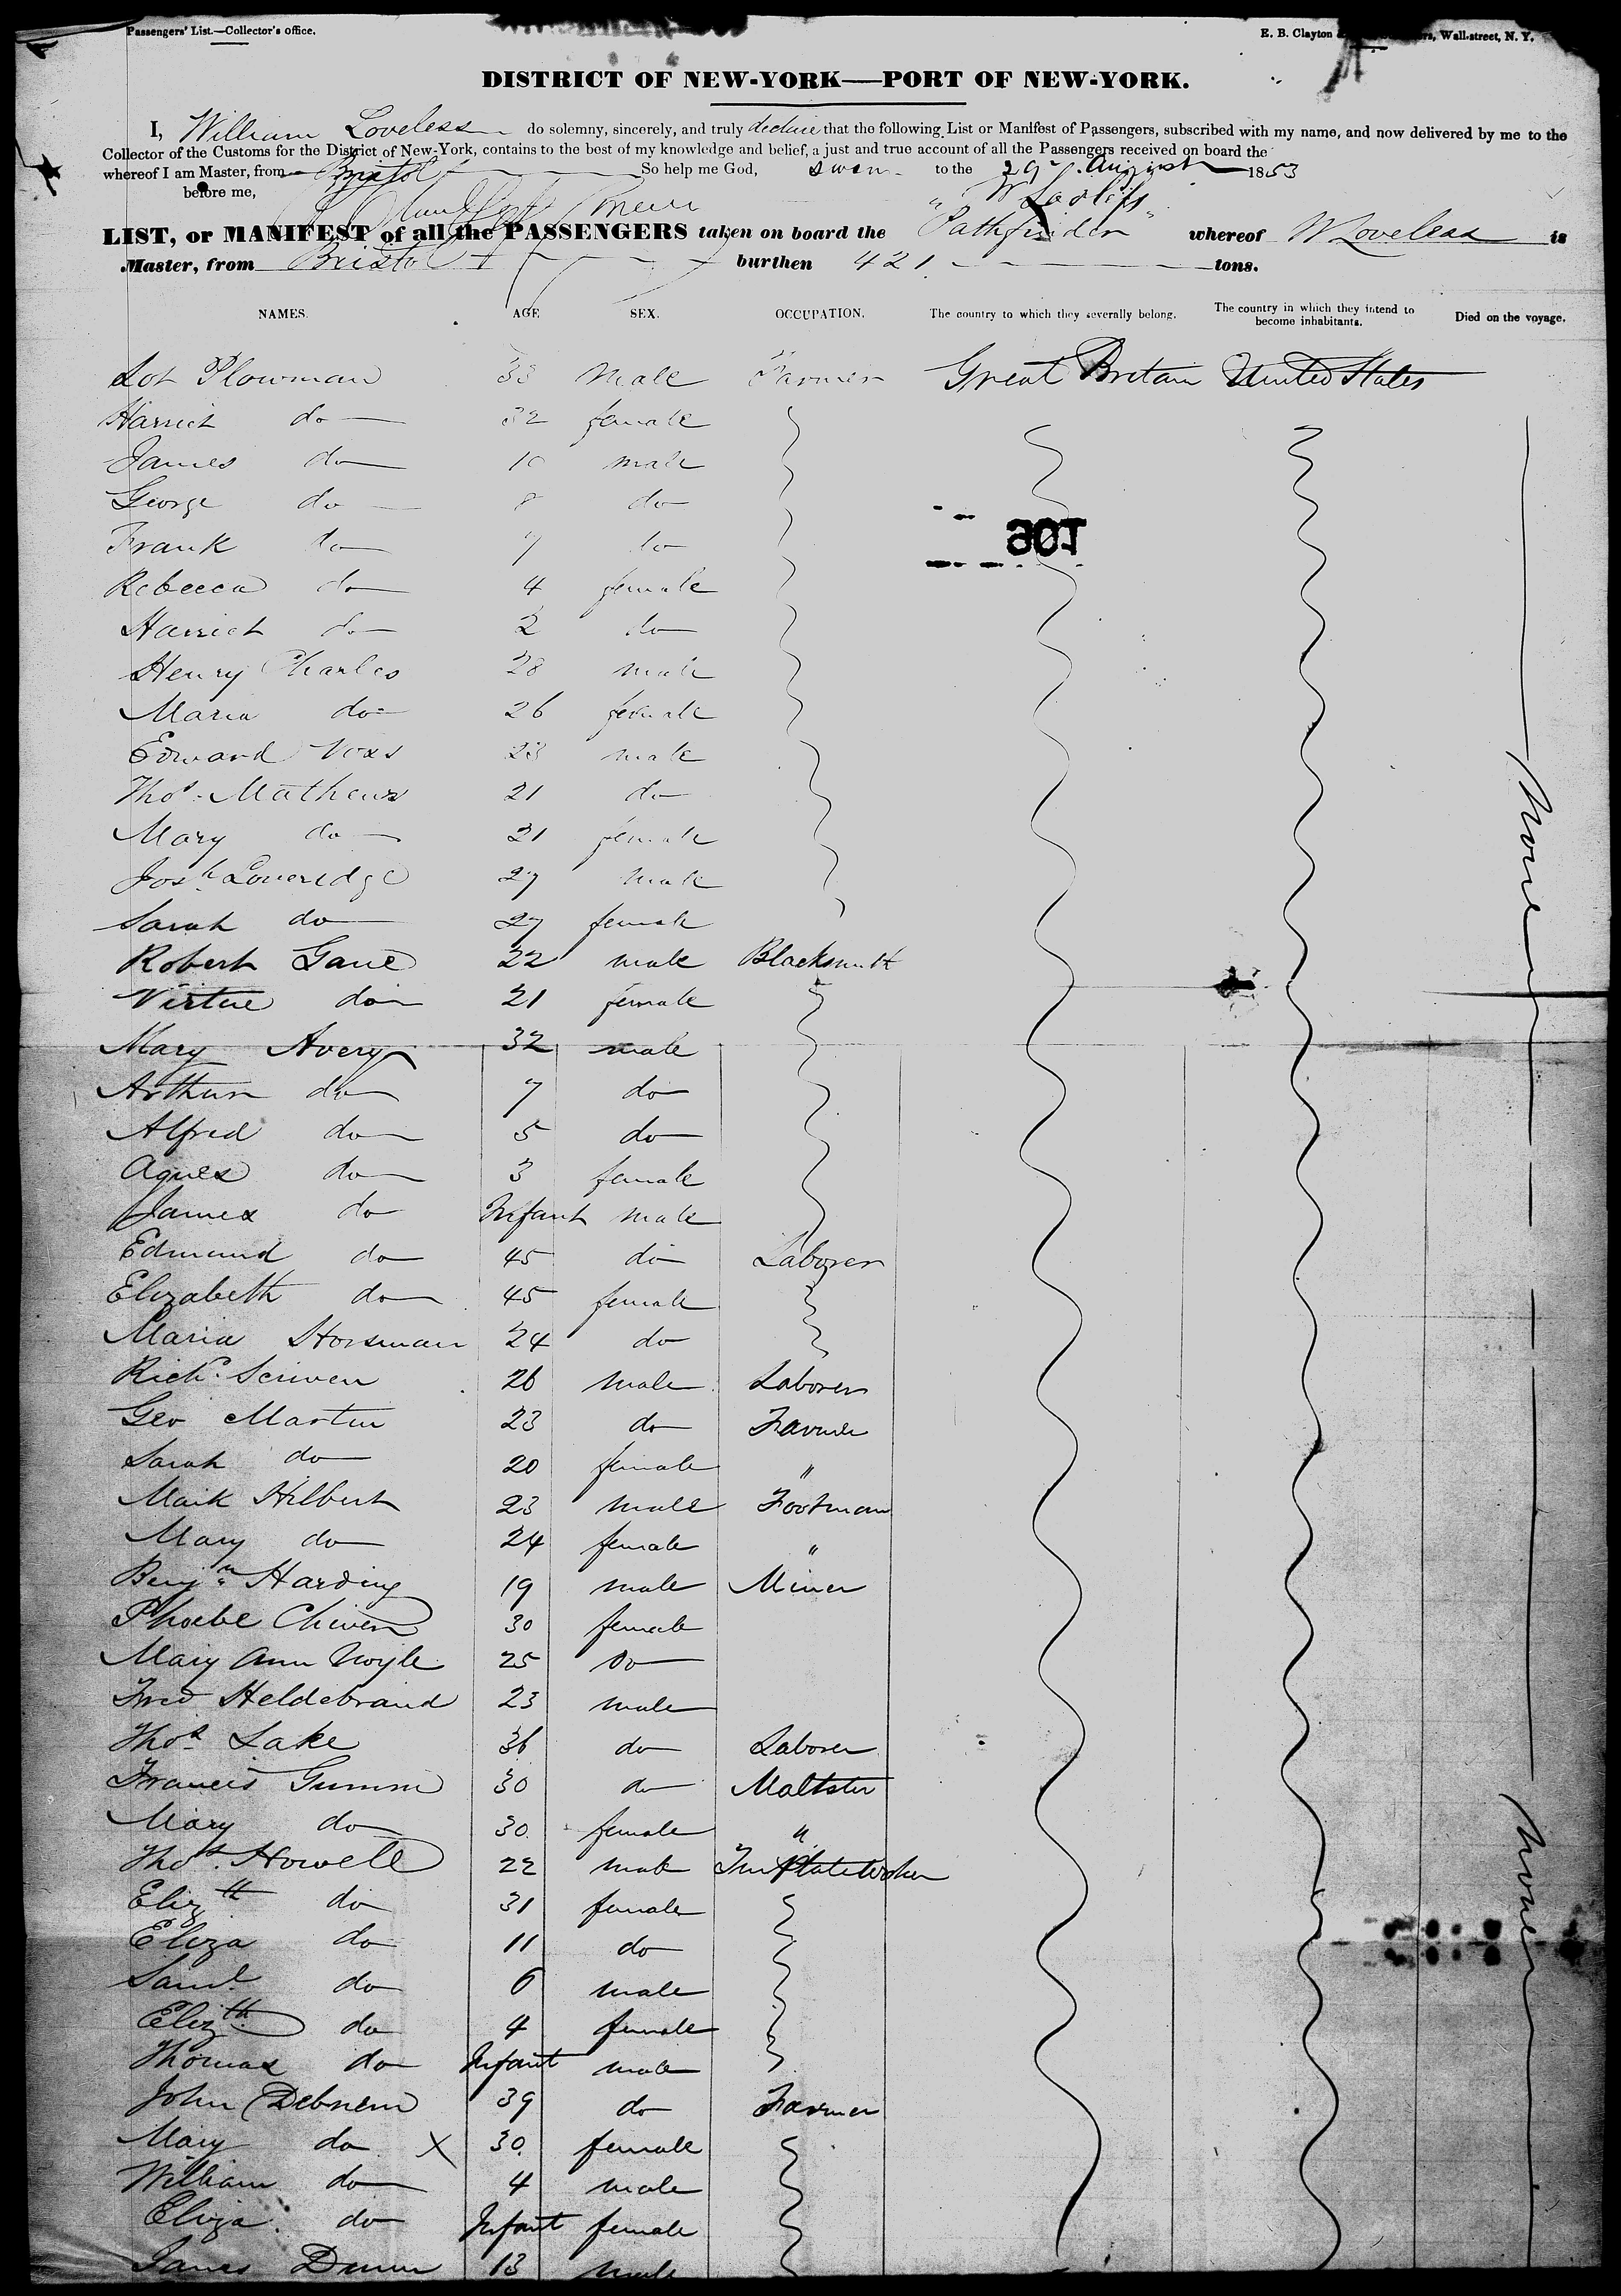 Passengers' List.—Collector's office.
E. B. Clayton Wall-street, N. Y.
DISTRICT OF NEW-YORK—PORT OF NEW-YORK.
I, William Loveless do solemny, sincerely, and truly declare that the following List or Manifest of Passengers, subscribed with my name, and now delivered by me to the
Collector of the Customs for the District of New-York, contains to the best of my knowledge and belief, a just and true account of all the Passengers received on board the
whereof I am Master, from Bristol So help me God, sworn to the 29 August 1853
before me,
LIST, or MANIFEST of all the PASSENGERS taken on board the Pathfinder whereof W Loveless is
Master, from Bristol burthen 421 tons.
NAMES. AGE SEX. OCCUPATION. The country to which they severally belong. The country in which they intend to become inhabitants. Died on the voyage.
Lot Plowman 33 Male Farmer Great Britain United States
Harriet do 32 female
James do 10 male
George do 8 do
Frank do 7 do
Rebecca do 4 female
Harriet do 2 do
Henry Charles 28 male
Maria do 26 female
Edward 23 male
Thos Mathews 21 do
Mary do 21 female
Josh Loveredge 27 male
Sarah do 27 female
Robert Gane 22 male Blacksmith
Virtue do 21 female
Mary Avery 32 male
Arthur do 7 do
Alfred do 5 do
Agnes do 3 female
James do Infant male
Edmund do 45 do Laborer
Elizabeth do 45 female
Maria Horsman 24 do
Richd Scriven 26 male Laborer
Geo Martin 23 do Farmer
Sarah do 20 female "
Mark Hilbert 23 male Footman
Mary do 24 female "
Benjn Harding 19 male Miner
Phoebe Chivers 30 female
Mary Ann 25 Do
Fred Heldebrand 23 male
Thos Lake 36 do Laborer
Francis Gumm 30 do Maltster
Mary do 30 female "
Thos Howell 22 male Tin Plate Worker
Elizth do 31 female
Eliza do 11 do
Saml do 6 male
Elizth do 4 female
Thomas do Infant male
John Debnem 39 do Farmer
Mary do X 30 female
William do 4 male
Eliza do Infant female
James Dunn 13 male
None
None